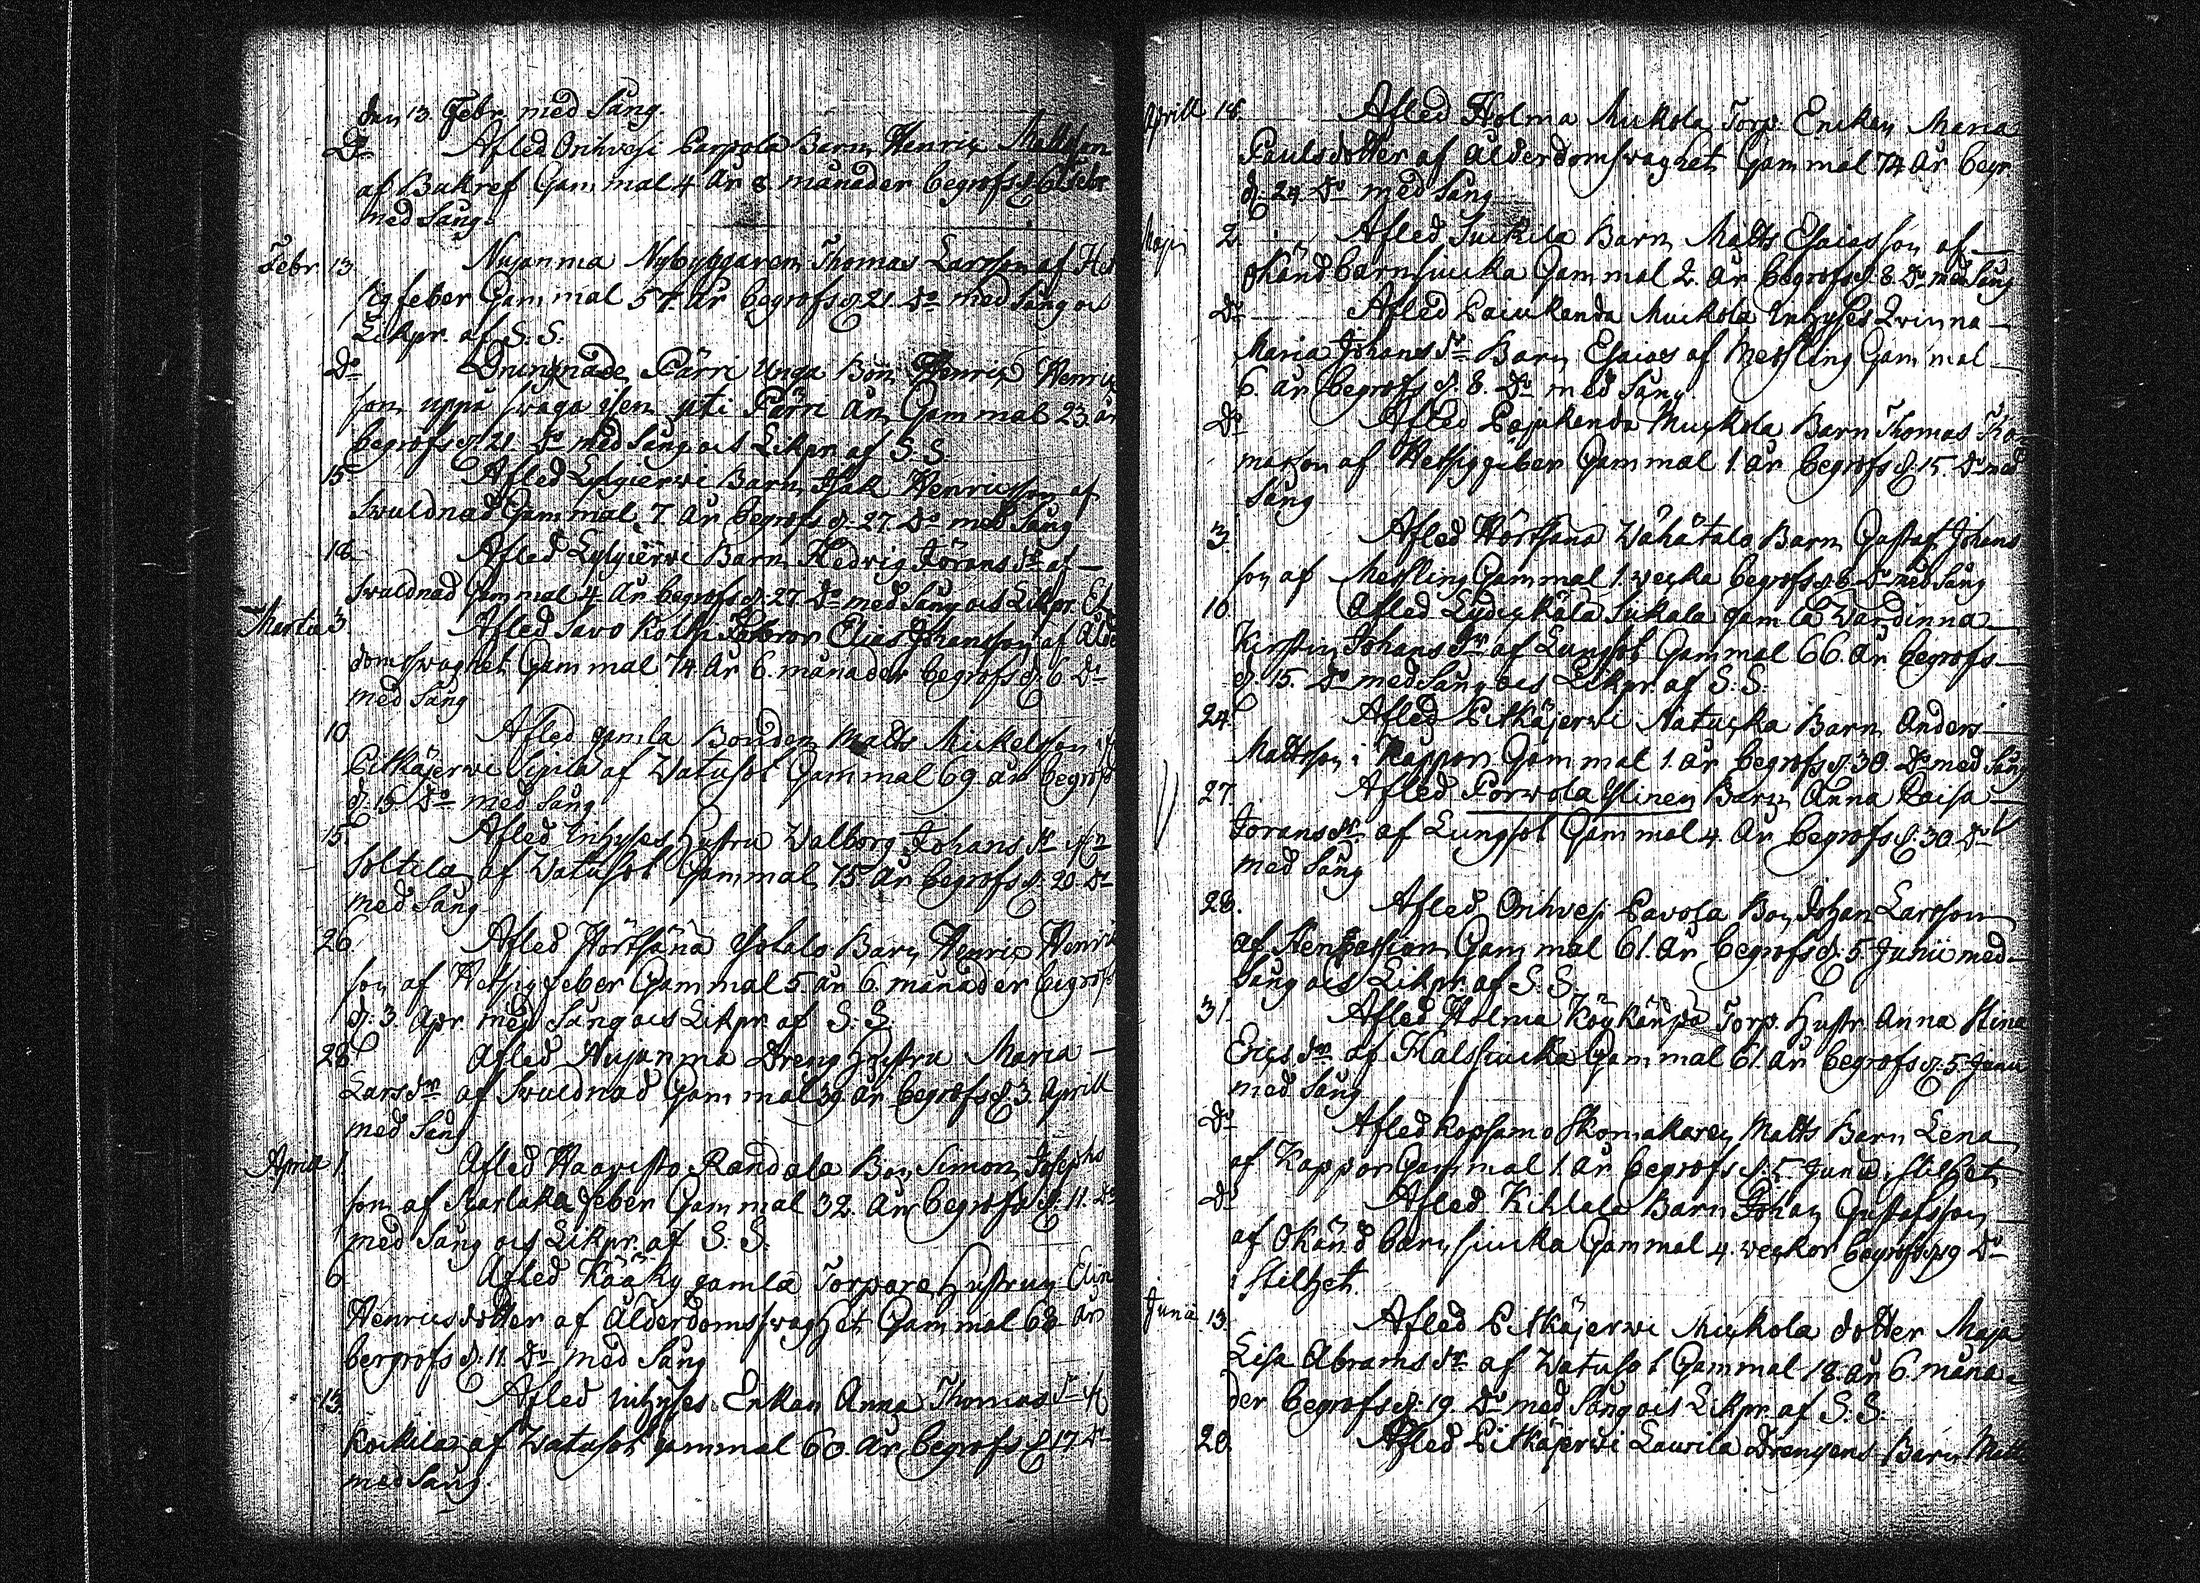 den 13 Febr. med Sång.
Do Afled Orihvesi Parpola Barn Henric Mattsson
af Bukref Gammal 4 År 8 månader begrofs d. Febr.
med Sång.
Febr. 13. Nujanma Nybyggaren Thomas Larsson af Het
sigfeber Gammal 57 År begrofs d. 21. Do med Sång oc
Likpr. af S. S.
Do Drungnade Pärri Unga Bon. Henric Henric
son uppå swaga isen uti Pärri Ån Gammal 23 år
begrofs d. 21. Do med Sång ocs Likpr. af S. S.
15 Afled Lylyierwi Barn Isak Henricsson af
Swuldnad Gammal 7 År begrofs d. 27. Do med Sång
18. Afled Lylyierwi Barn Hedvig Görans dr af
Swuldnad Gammal 4 År begrofs d. 27 Do med Sång ocs Likpr.
Martii 3 Afled Savo Kolki Elias Johansson af Ålder
domsswaghet Gammal 74 År 6. månader begrofs d. 6 Do
med Sång
10 Afled gamla Bonden Matts Mickelsson i
Pitkäjerwi Sipilä af Watusot Gammal 69 år begrofs
d. 15 Do med Sång
15. Afled Inhyses Hustru Walborg Johans dr
Soltila af Watusot Gammal 75 År begrofs d. 20 Do
med Sång
26 Afled Hörtsänä Isotalo Barn Henric Henric
son af Hetsigfeber Gammal 5 år 6. månader begrofs
d. 3. Apr. med Sång ocs Likpr. af S. S.
28 Afled Nujanma Dreng Hustru Maria
Lars dr af Swuldnad Gammal 39 år begrofs d. 3. Aprill
med Sång
Aprill 1. Afled Haavisto Randala Bon Simon Josephs
son af Skarlaka feber Gammal 32. År begrofs d. 11. Do
med Sång ocs Likpr. af S. S.
6 Afled Kääky gamla Torpare Hustrun Elin
Henricsdotter af Ålderdomsswaghet Gammal 68 År
bergrofs d. 11. Do med Sång
13. Afled Inhyses Enkan Anna Thomas dr
Koikila af Watusot gammal 60 År begrofs d. 17 Do
med Sång.
Aprill 18. Afled Holma Muckola Torp. Enckan Maria
Paulsdotter af Ålderdomswaghet Gammal 74 År begr.
d. 24. Do med Sång
Maji 2. Afled Suckila Barn Matts Esaiasson af
Okänd barnsiucka Gammal 2. År begrofs d. 8. Do med Sång
Do Afled Paiukanda Muckola Inhyses Qvinna
Maria Johans dr Barn Esaias af Messling Gammal
6. år begrofs d. 8. Do med Sång.
Do Afled Pajukanda Muckola Barn Thomas Tho-
masson af Hetsiggfeber Gammal 1. år begrofs d. 15. Do med
Sång
3. Afled Hörtsänä Wähätalo Barn Gustaf Johans
son af Messling Gammal 1. wecka begrofs d. 8. Do med Sång
10. Afled Lydickälä Sukala gamla Wärdinna
Kirstin Johans dr af Lungsot Gammal 66. År begrofs
d. 15. Do med Sång ocs Likpr. af S. S.
24. Afled Pitkäjerwi Natucka Barn Anders
Mattsson i Kappor Gammal 1. år begrofs d. 30. Do med Sång
27. Afled Porwola Barn Anna Caisa
Jörans dr af Lungsot Gammal 4. År begrofs d. 30. Do
med Sång
28. Afled Orihvesi Pavola Bon Johan Larsson
af Gammal 61. År begrofs d. 5 Junii med
Sång ocs Likpr. af S. S.
31. Afled Holma Köykänpä Torp. Hustr. Anna Stina
Erics dr af Halssiucka Gammal 61. år begrofs d. 5 Junii
med Sång
Do Afled Kopsamo Skomakaren Matts Barn Lena
af Kappor Gammal 1. år begrofs d. 5 Junii i Stilhet
Do Afled Kihlala Barn Johan Gustafsson
af Okänd barnsiucka Gammal 4. weckor begrofs d. 9 Do
i Stilhet.
Junii 13. Afled Pitkäjerwi Mickola dotter Maja
Lisa Abrams dr af Watusot Gammal 18. år 6. måna-
der begrofs d. 19. Do med Sång ocs Likpr. af S. S.
20. Afled Pitkäjerwi Laurila Drengens Barn Matts